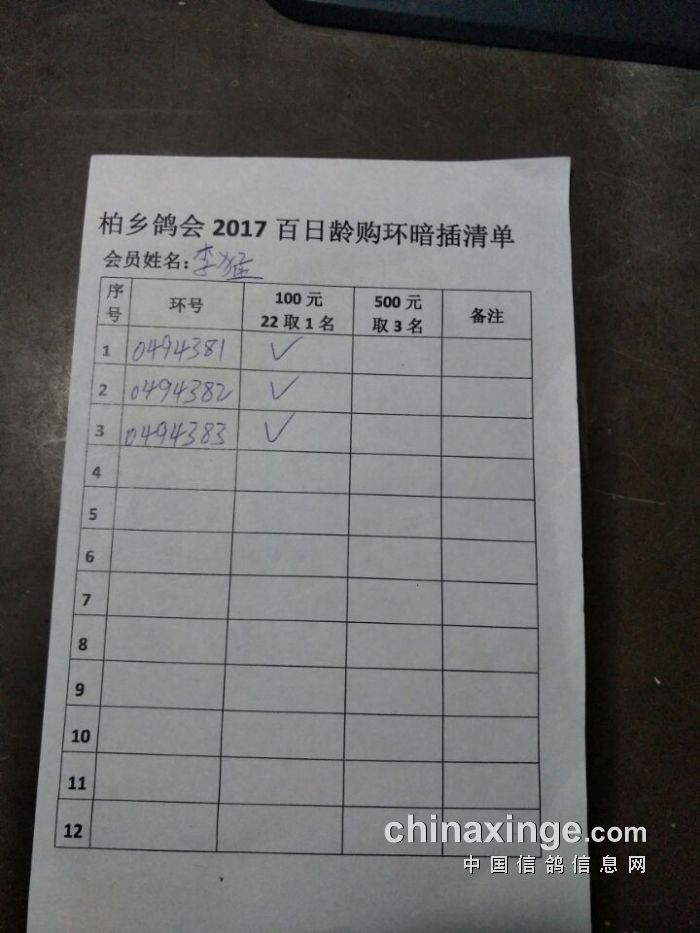 柏乡鸽会2017百日龄购环暗插清单
会员姓名:李猛
序号 环号 100元 22取1名 500元 取3名 备注
1 0494381 ✓
2 0494382 ✓
3 0494383 ✓
4
5
6
7
8
9
10
11
12
chinaxinge.com
中国信鸽信息网